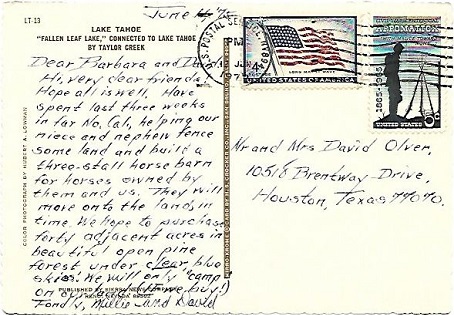 LT-13
LAKE TAHOE
"FALLEN LEAF LAKE," CONNECTED TO LAKE TAHOE
BY TAYLOR CREEK
June
Dear Barbara and Dave,
Hi, very dear friends!
Hope all is well. Have
spent last three weeks
in far No. Cal, helping our
niece and nephew fence
some land and build a
three-stall horse barn
for horses owned by
them and us. They will
move onto the land, in
time. We hope to purchase
forty adjacent acres in
beautiful open pine
forest under clear, blue
skies. We will only "camp"
on our acres (if we buy!)
Fondly, Millie and David
PUBLISHED BY SIERRA NEWS
COLOR PHOTOGRAPH BY HUBERT A. LOWMAN
U.S. POSTAL SERVICE
PM
JUN
LONG MAY IT WAVE
4¢
UNITED STATES OF AMERICA
CIVIL WAR CENTENNIAL
APPOMATTOX
WITH MALICE TOWARD NONE
1865-1965
UNITED STATES
5¢
Mr and Mrs David Olver,
10518 Brentway Drive,
Houston, Texas 77070.